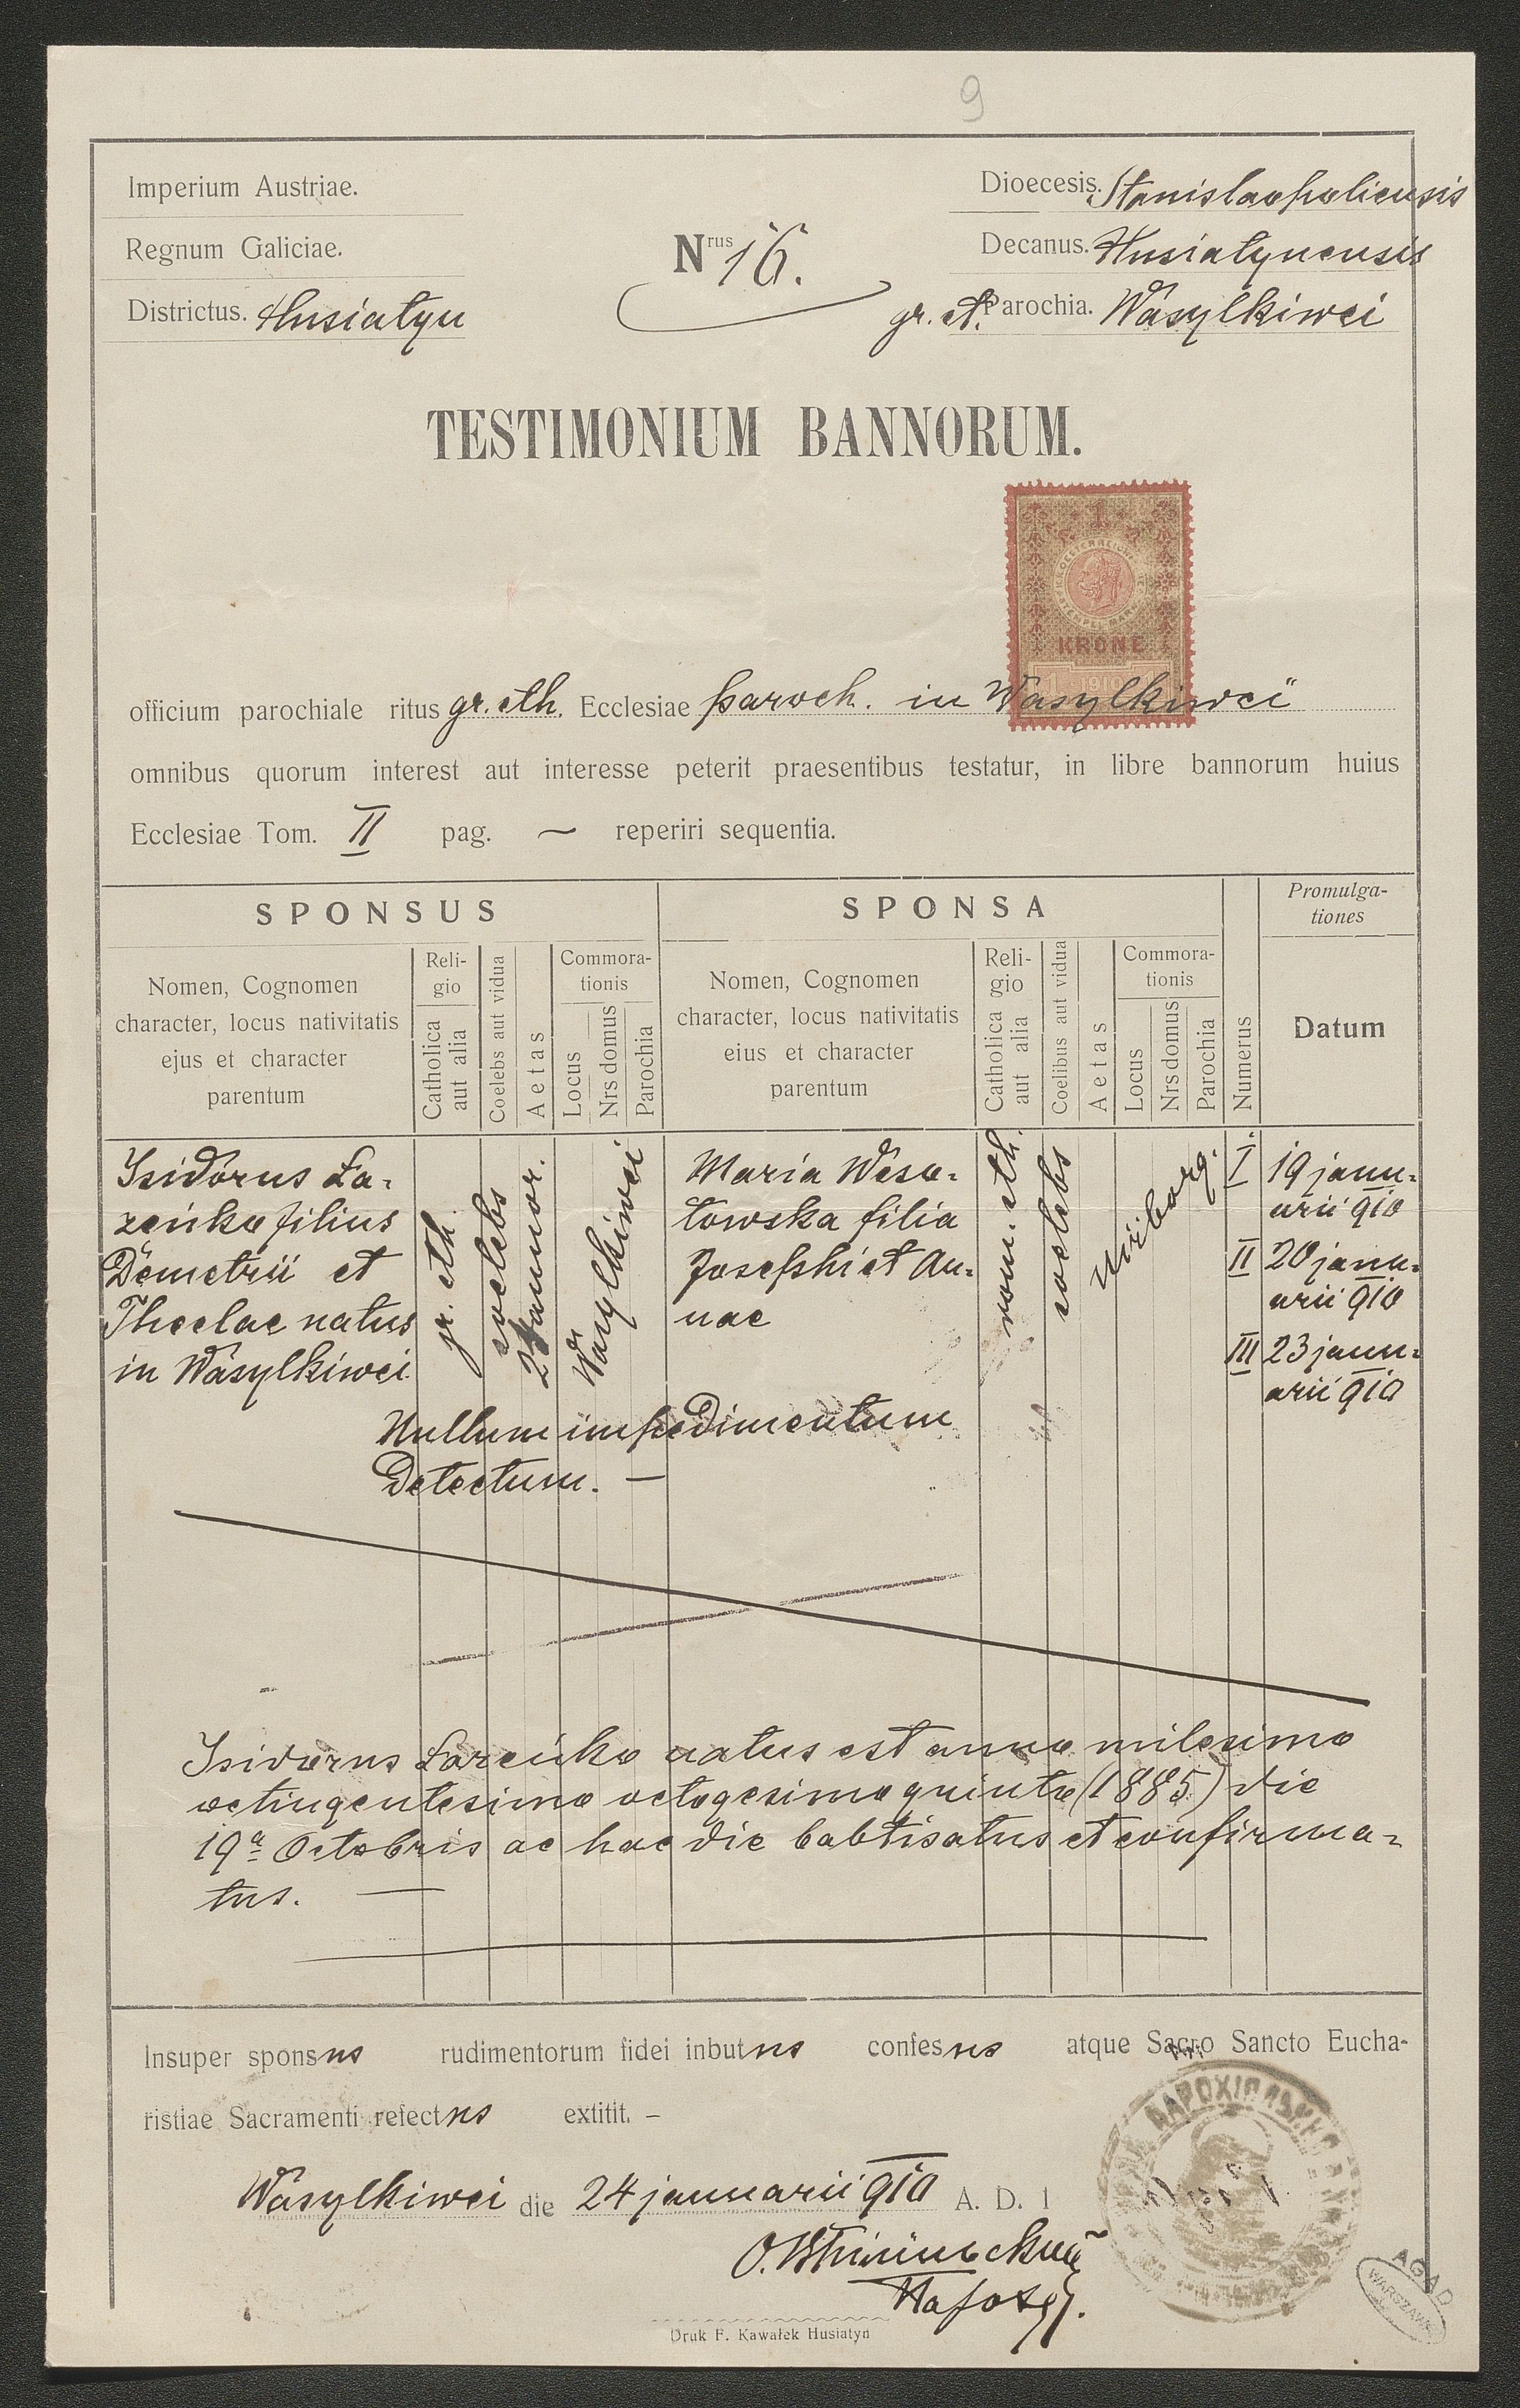 9
Imperium Austriae.
Regnum Galiciae.
Districtus. Husiatyn
Nrus 16.
Dioecesis. Stanislaopoliensis
Decanus. Husiatynensis
gr. ct. Parochia. Wasylkiwci
TESTIMONIUM BANNORUM.
1
KRONE
1910
officium parochiale ritus gr. cth. Ecclesiae paroch. in Wasylkiwci
omnibus quorum interest aut interesse peterit praesentibus testatur, in libre bannorum huius
Ecclesiae Tom. II pag. ~ reperiri sequentia.
SPONSUS
SPONSA
Promulga-
tiones
Nomen, Cognomen
character, locus nativitatis
ejus et character
parentum
Reli-
gio
Catholica
aut alia
Coelebs aut vidua
Aetas
Commora-
tionis
Locus
Nrs domus
Parochia
Nomen, Cognomen
character, locus nativitatis
eius et character
parentum
Reli-
gio
Catholica
aut alia
Coelibus aut vidua
Aetas
Commora-
tionis
Locus
Nrs domus
Parochia
Numerus
Datum
Isidorus Ła-
zeńko filius
Demetrii et
Theclae natus
in Wasylkiwci
gr. cth.
coelebs
24 annor.
Wasylkiwci
Maria Weso-
łowska filia
Josephi et An-
nae
rom. cth.
coelebs
I 19 janu-
arii 910
II 20 janu-
arii 910
III 23 janu-
arii 910
Nullum impedimentum
detectum. —
Isidorus Łazeńko natus est anno milesimo
octingentesimo octogesimo quinto (1885) die
19a Octobris ac hac die babtisatus et confirma-
tus. —
Insuper sponsus rudimentorum fidei inbutus confesus atque Sacro Sancto Eucha-
ristiae Sacramenti refectus extitit. –
Wasylkiwci die 24 januarii 910 A. D. 1
Druk F. Kawałek Husiatyn
AGAD
WARSZAWA